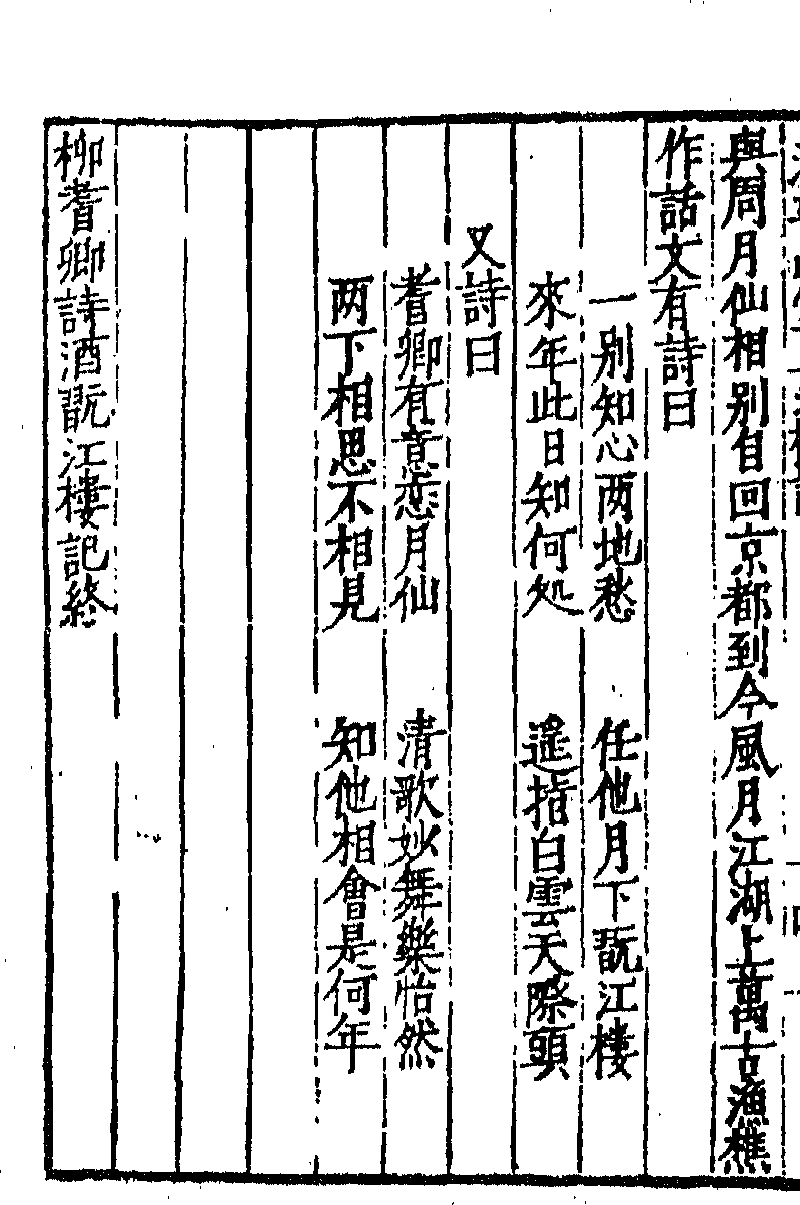 與周月仙相别自回京都到今風月江湖上萬古漁樵
作話文有詩曰
一别知心两地愁 任他月下翫江樓
來年此日知何処 遥指白雲天際頭
又詩曰
耆卿有意恋月仙 清歌妙舞樂怡然
两下相思不相見 知他相會是何年
柳耆卿詩酒翫江樓記終